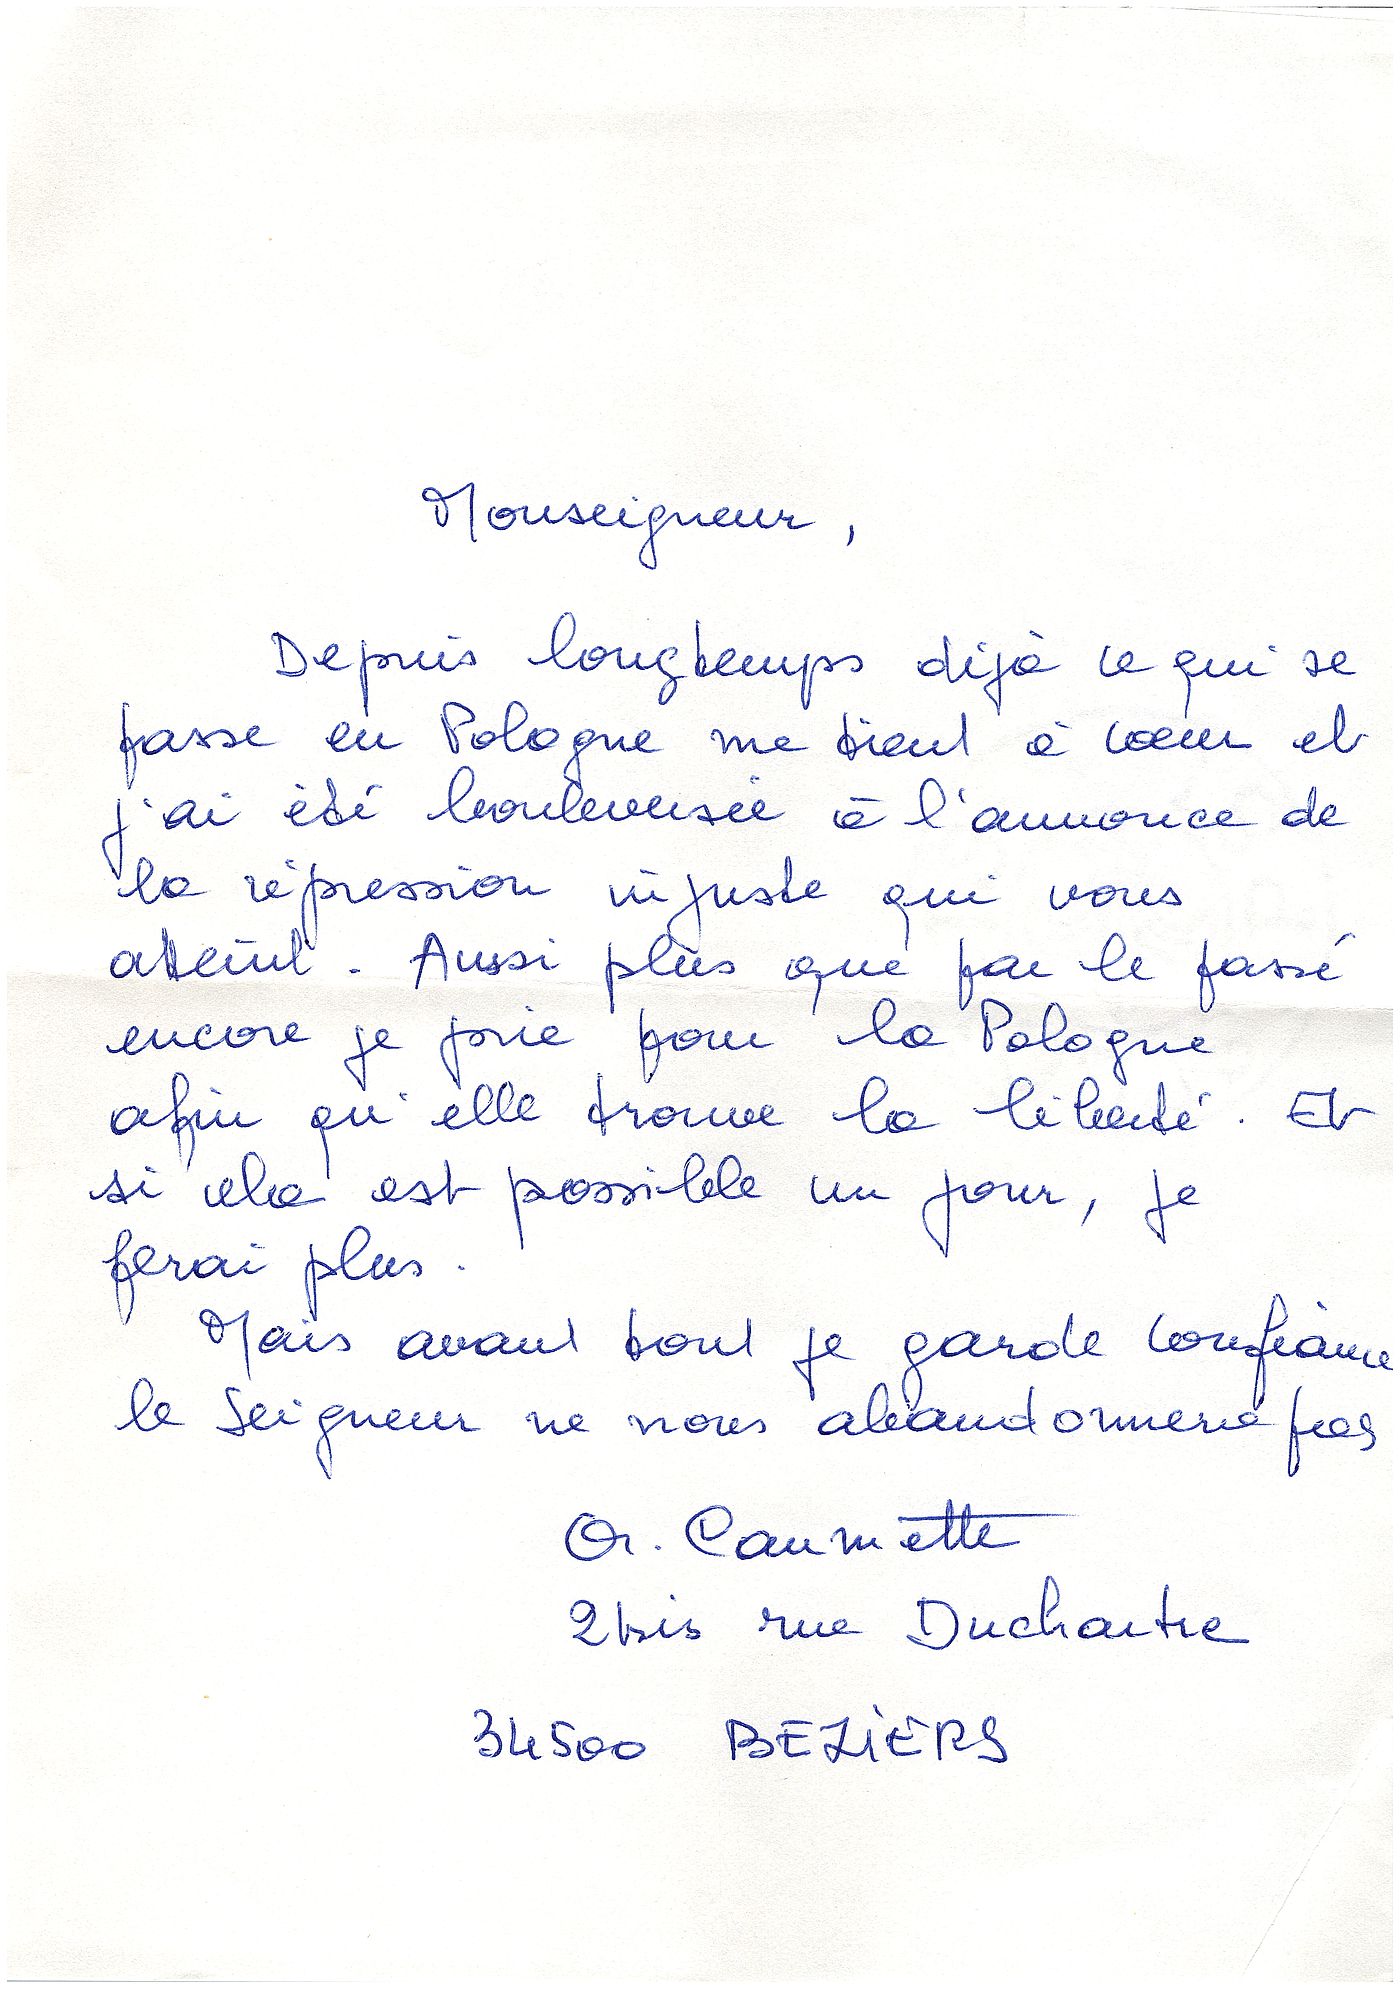 Monseigneur,
Depuis longtemps déjà ce qui se
passe en Pologne me tient à cœur et
j'ai été bouleversée à l'annonce de
la répression injuste qui vous
atteint. Aussi plus que par le passé
encore je prie pour la Pologne
afin qu'elle trouve la liberté. Et
si cela est possible un jour, je
ferai plus.
Mais avant tout je garde confiance
le Seigneur ne nous abandonnera pas
Caumette
2 bis rue Duchartre
34500 BEZIERS